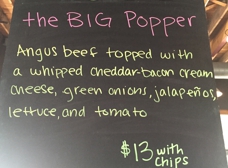 the BIG Popper
Angus beef topped with
a whipped cheddar-bacon cream
cheese, green onions, jalapeños,
lettuce, and tomato
$13 with
chips